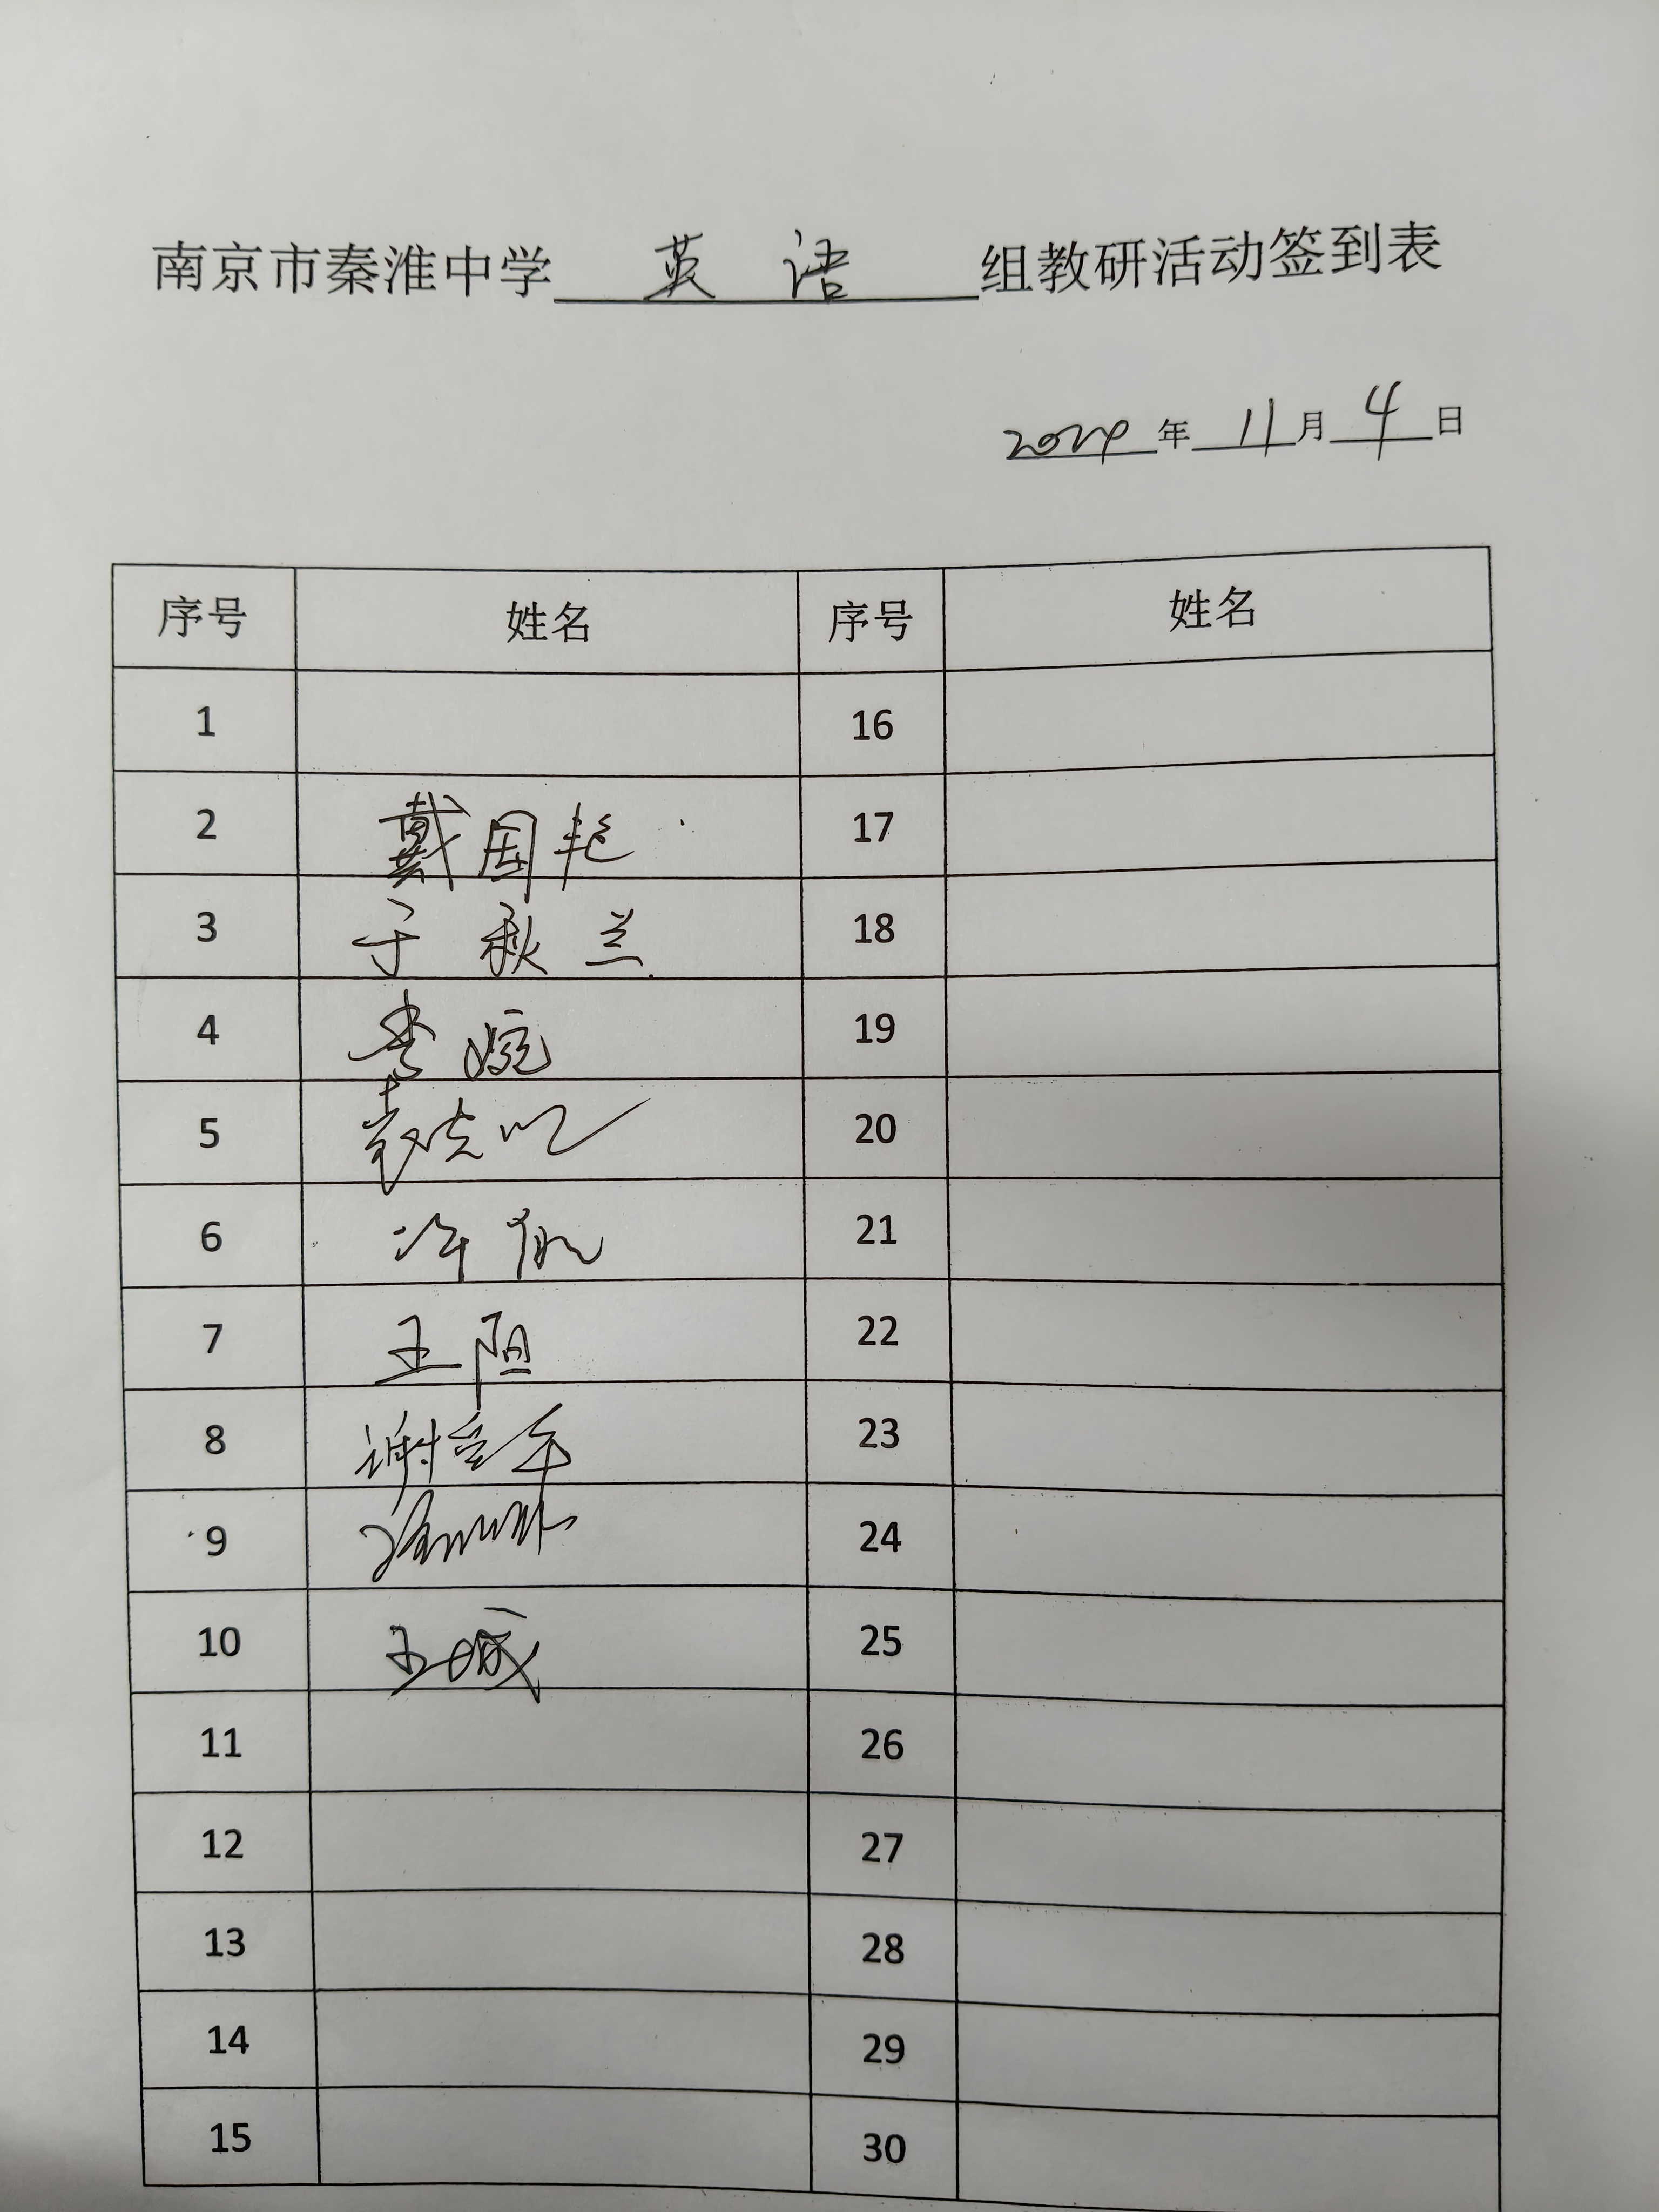 南京市秦淮中学 英语 组教研活动签到表
2024 年 11 月 4 日
序号 姓名 序号 姓名
1 16
2 戴国艳 17
3 于秋兰 18
4 李婉 19
5 袁晓 20
6 21
7 王阳 22
8 谢 23
9 24
10 王 25
11 26
12 27
13 28
14 29
15 30